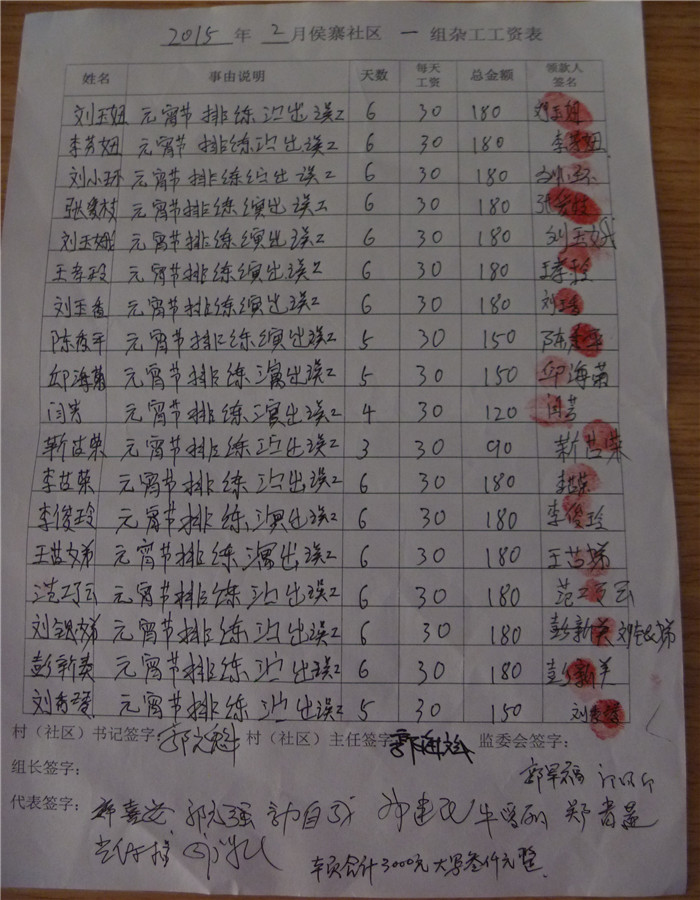 2015 年 2 月侯寨社区 一 组杂工工资表
姓名 事由说明 天数 每天工资 总金额 领款人签名
刘玉妞 元宵节排练演出误工 6 30 180 刘玉妞
李芳妞 元宵节排练演出误工 6 30 180 李芳妞
刘小环 元宵节排练演出误工 6 30 180 刘小环
张爱枝 元宵节排练演出误工 6 30 180 张爱枝
刘玉娥 元宵节排练演出误工 6 30 180 刘玉娥
王孝段 元宵节排练演出误工 6 30 180 王孝段
刘玉香 元宵节排练演出误工 6 30 180 刘玉香
陈秀平 元宵节排练演出误工 5 30 150 陈秀平
邱海菊 元宵节排练演出误工 5 30 150 邱海菊
闫芳 元宵节排练演出误工 4 30 120 闫芳
靳苗荣 元宵节排练演出误工 3 30 90 靳苗荣
李苗荣 元宵节排练演出误工 6 30 180
李俊玲 元宵节排练演出误工 6 30 180 李俊玲
王苗娣 元宵节排练演出误工 6 30 180 王苗娣
元宵节排练演出误工 6 30 180
刘银娣 元宵节排练演出误工 6 30 180 彭新美 刘银娣
彭新美 元宵节排练演出误工 6 30 180 彭新美
元宵节排练演出误工 5 30 150
村（社区）书记签字： 村（社区）主任签字： 监委会签字：
组长签字：
代表签字：
本页合计3000元 大写叁仟元整